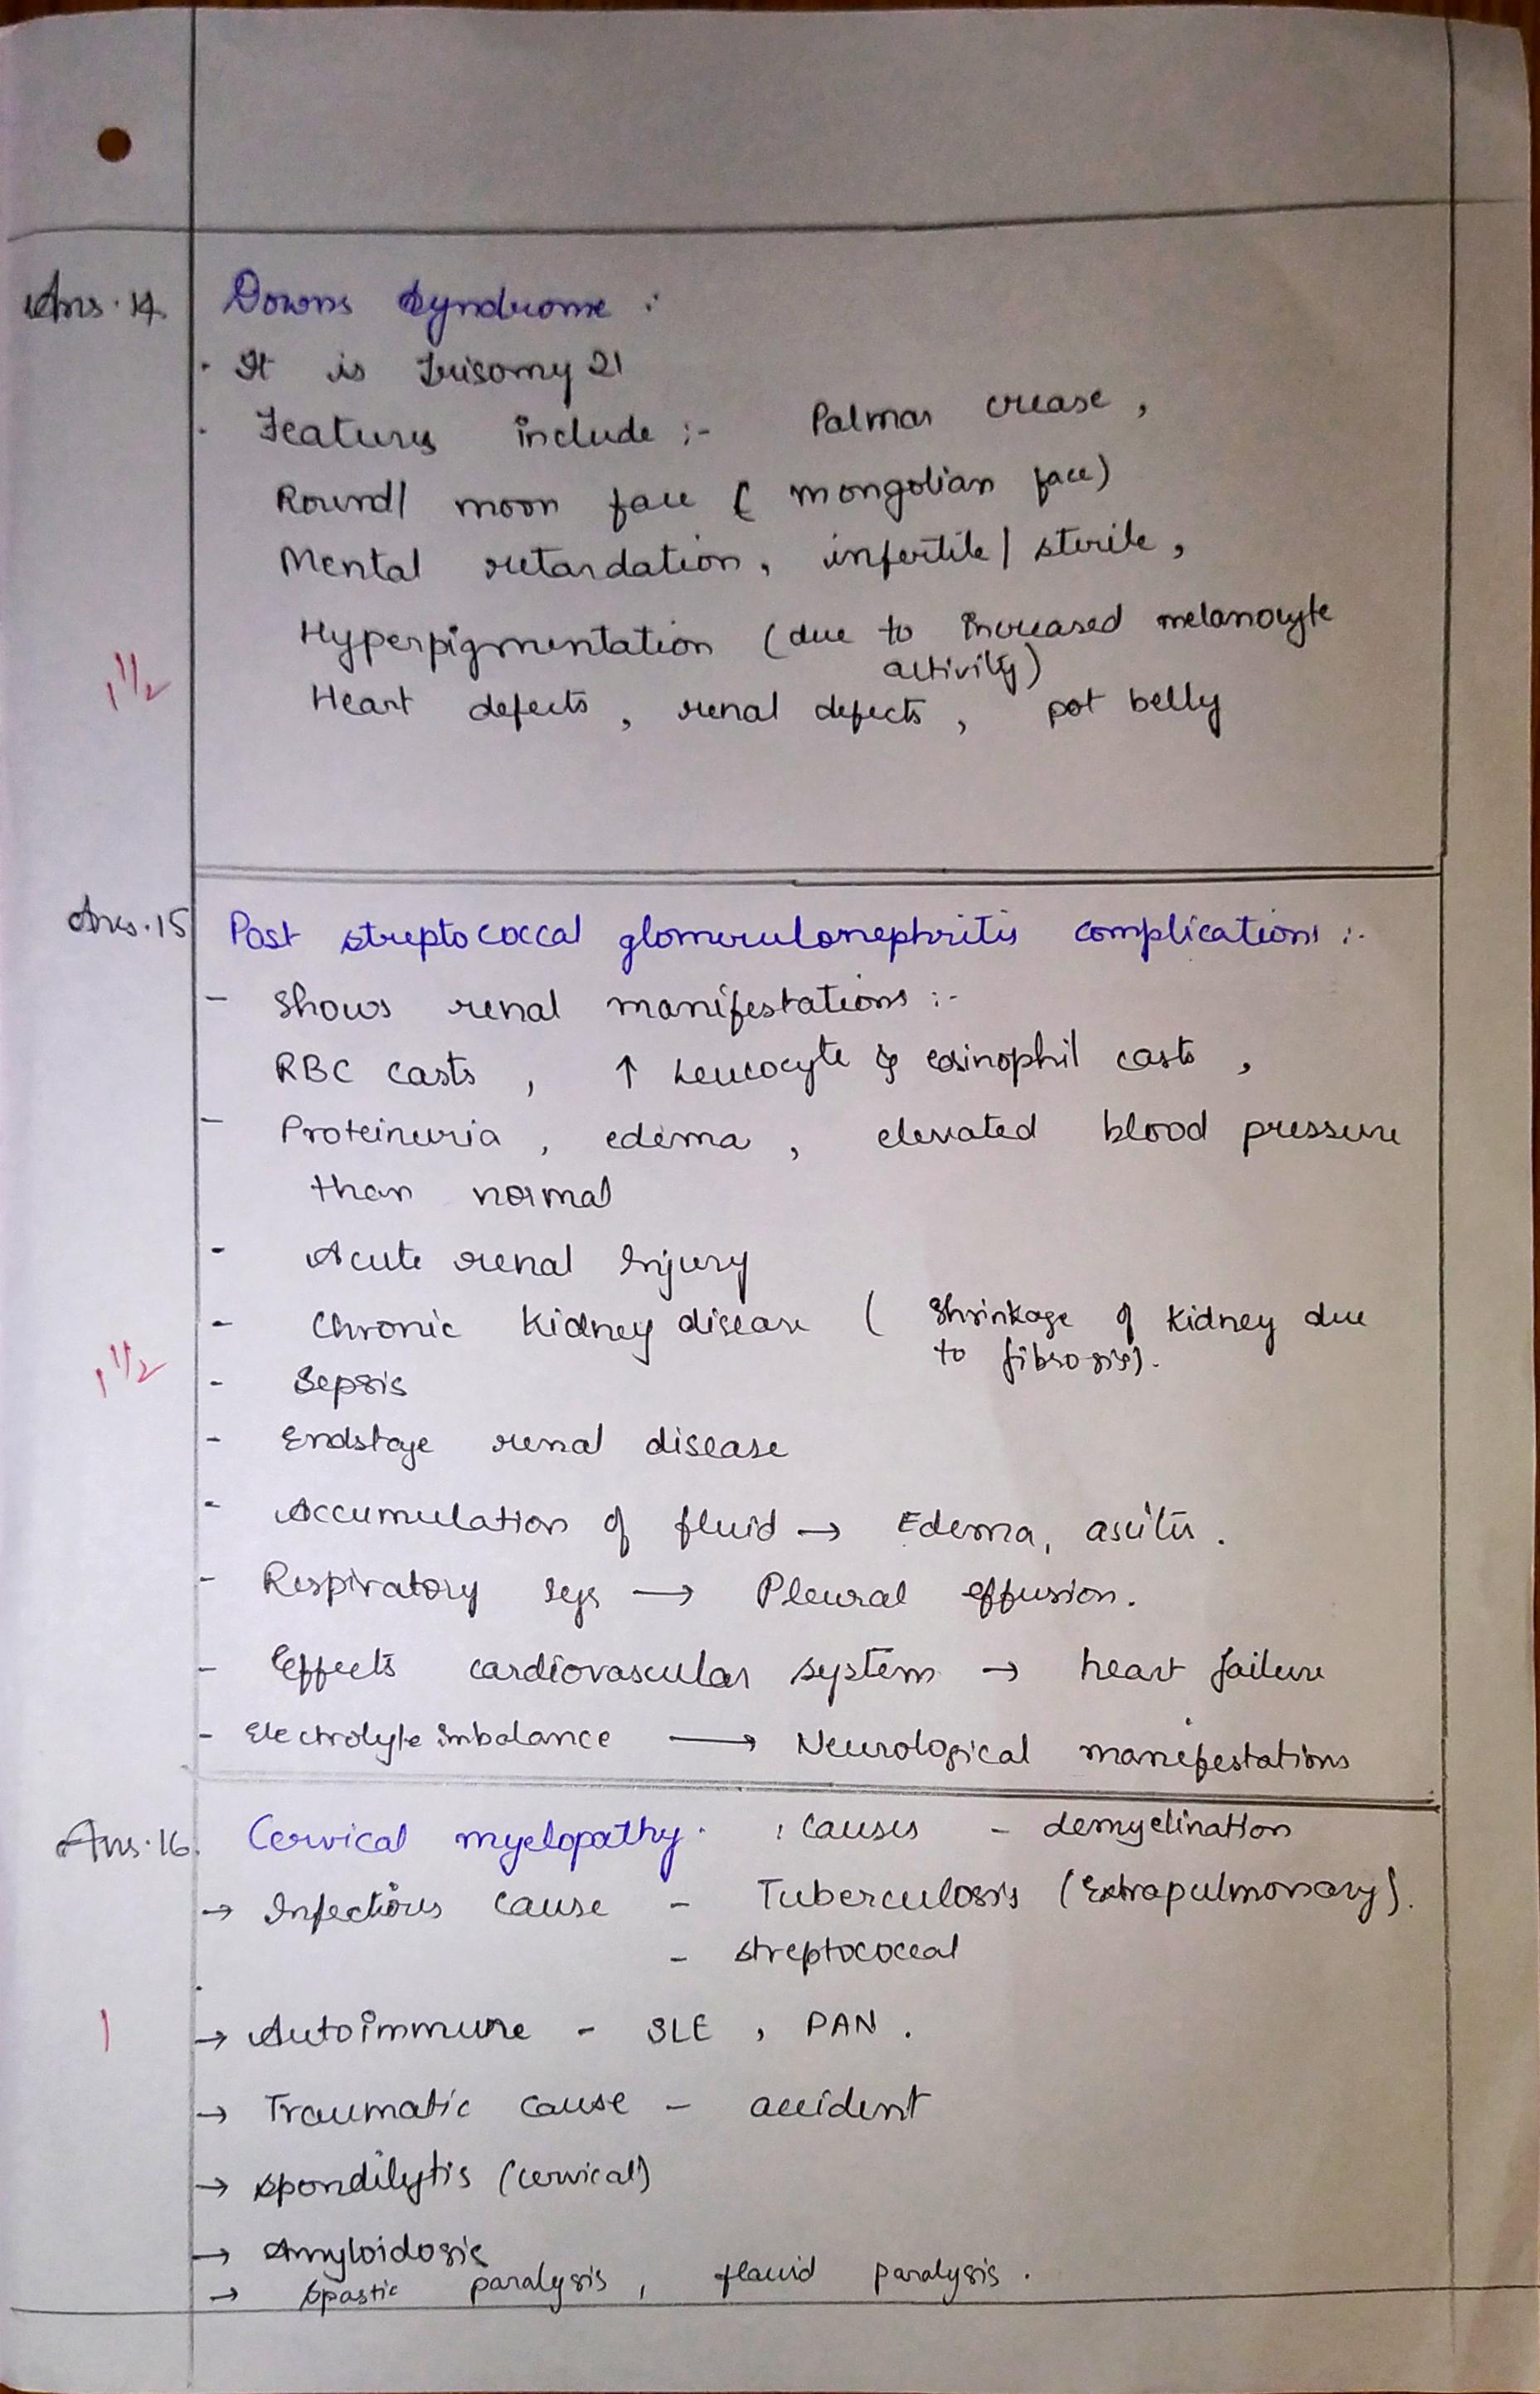 Ans.14. Downs Syndrome :
· It is Trisomy 21
· Features include :- Palmar crease ,
Round/ moon face ( mongolian face)
Mental retardation, infertile/ sterile ,
Hyperpigmentation (due to increased melanocyte
activity)
1 1/2
Heart defects , renal defects , pot belly
Ans.15 Post streptococcal glomerulonephritis complications :-
- Shows renal manifestations :-
RBC casts , ↑ Leucocyte & eosinophil casts ,
- Proteinuria , edema , elevated blood pressure
than normal
- Acute renal Injury
- Chronic Kidney disease ( Shrinkage of Kidney due
to fibrosis).
1 1/2
- Sepsis
- Endstage renal disease
- Accumulation of fluid → Edema, ascites .
- Respiratory sys → Pleural effusion.
- Effects cardiovascular system → heart failure
- Electrolyte imbalance → Neurological manifestations
Ans.16. Cervical myelopathy . : causes - demyelination
→ Infectious cause - Tuberculosis (Extrapulmonary).
- streptococcal
1
→ Autoimmune - SLE , PAN .
→ Traumatic cause - accident
→ spondilytis (cervical)
→ Amyloidosis
→ Spastic paralysis , flacid paralysis .